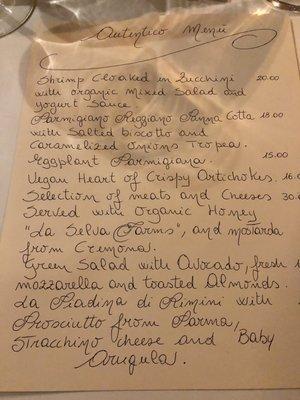 Autentico Menù
Shrimp Cloaked in Zucchini 20.00
with organic Mixed Salad and
yogurt Sauce.
Parmigiano Reggiano Panna Cotta 18.00
with Salted biscotto and
Caramelized Onions Tropea.
Eggplant Parmigiana. 15.00
Vegan Heart of Crispy Artichokes. 16.0
Selection of meats and Cheeses 30.0
Served with Organic Honey
"La Selva Farms", and mostarda
from Cremona.
Green Salad with Avocado, fresh
mozzarella and toasted Almonds.
La Piadina di Rimini with
Prosciutto from Parma,
Stracchino cheese and Baby
Arugula.